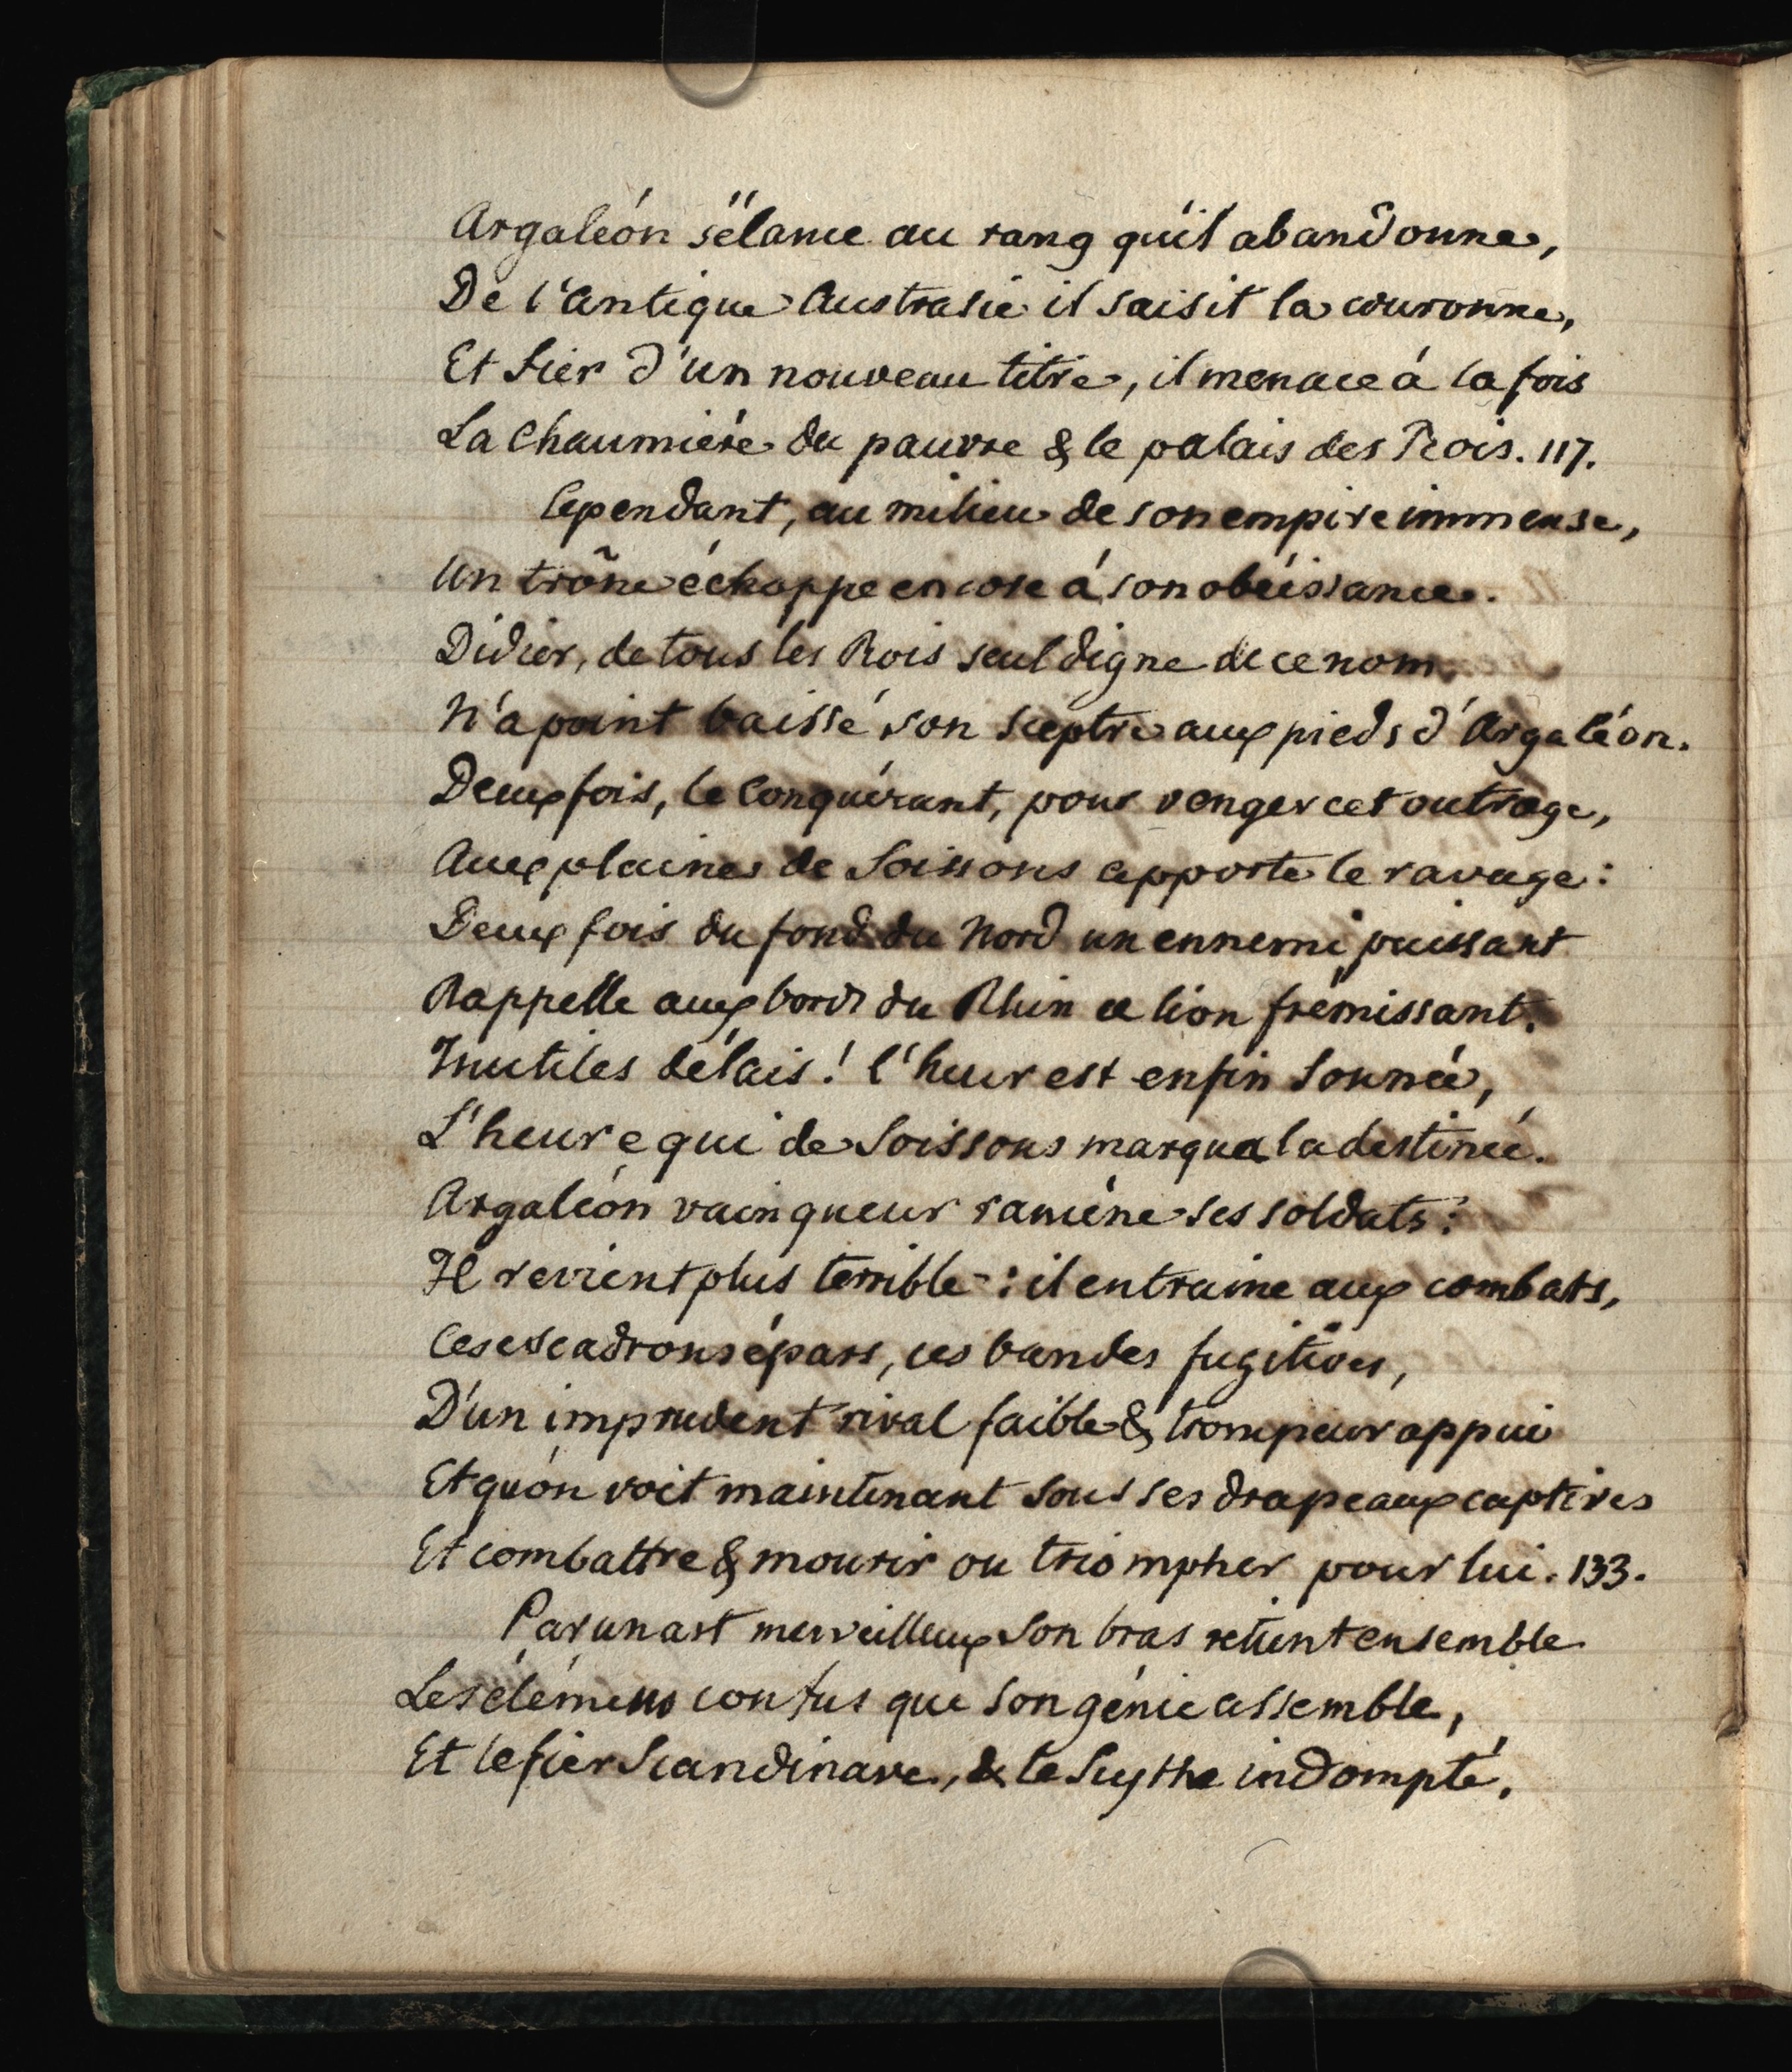 Argaléon s'élance au rang qu'il abandonne,
De l'antique Austrasie il saisit la couronne,
Et fier d'un nouveau titre, il menace à la fois
La Chaumière du pauvre & le palais des Rois. 117.
Cependant, au milieu de son empire immense,
Un trône échappe encore à son obéissance.
Didier, de tous les Rois seul digne de ce nom
N'a point baissé son sceptre aux pieds d'Argaléon.
Deux fois, le Conquérant, pour venger cet outrage,
Aux plaines de Soissons apporte le ravage:
Deux fois du fond du Nord un ennemi puissant
Rappelle aux bords du Rhin ce lion frémissant.
Inutiles délais! l'heur est enfin sonnée,
L'heure qui de Soissons marqua la destinée.
Argaléon vainqueur ramène ses soldats:
Il revient plus terrible: il entraine aux combats,
Ces escadrons épars, ces bandes fugitives,
D'un imprudent rival faible & trompeur appui
Et qu'on voit maintenant sous ses drapeaux captives
Et combattre & mourir ou triompher pour lui. 133.
Par un art merveilleux son bras retient ensemble
Les élémens confus que son génie assemble,
Et le fier Scandinave, & le Scythe indompté,